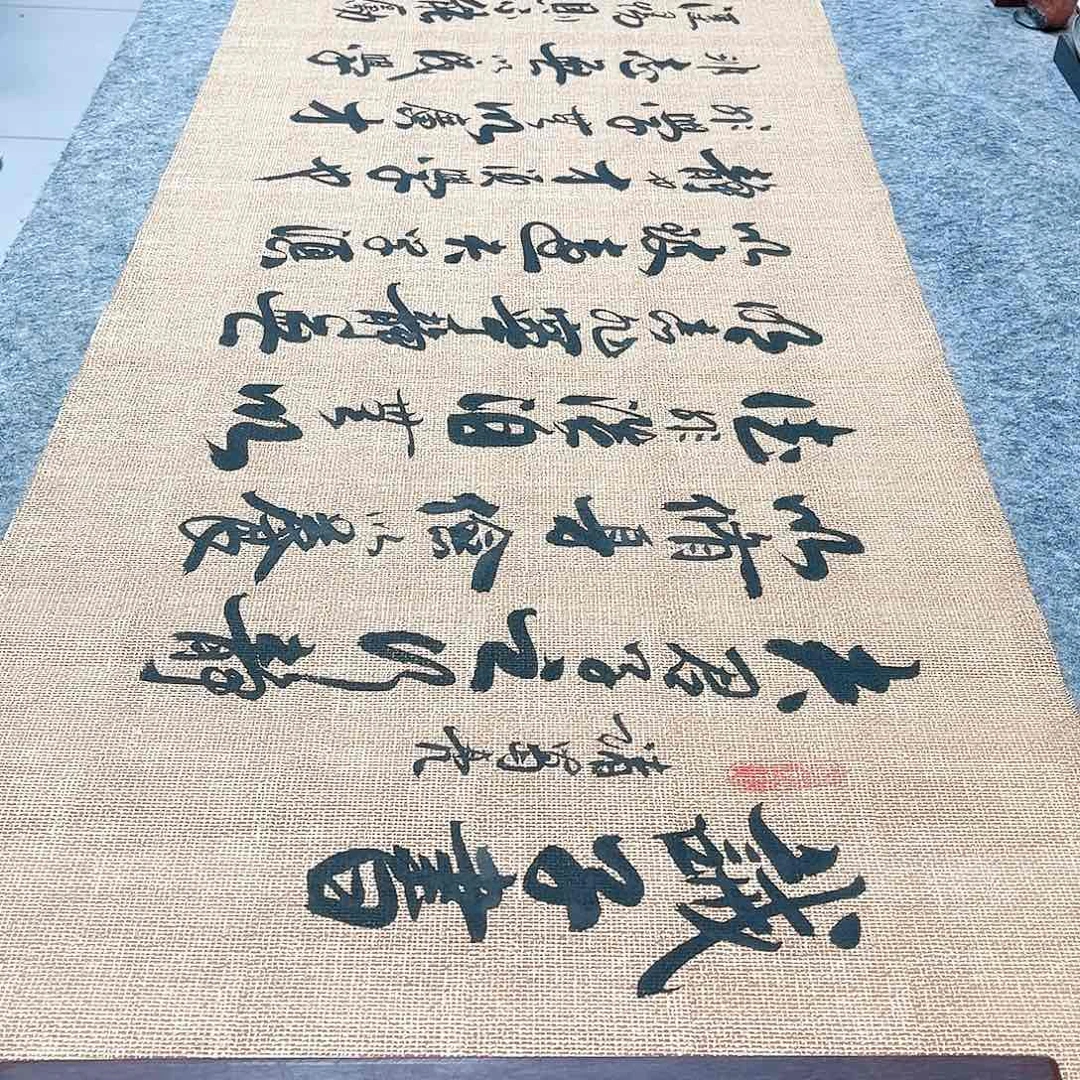 誡子書
諸葛亮
夫君子之行靜
以脩身儉以養
德非澹泊無以
明志非寧靜無
以致遠夫學須
靜也才須學也
非學無以廣才
非志無以成學
慢則不能勵